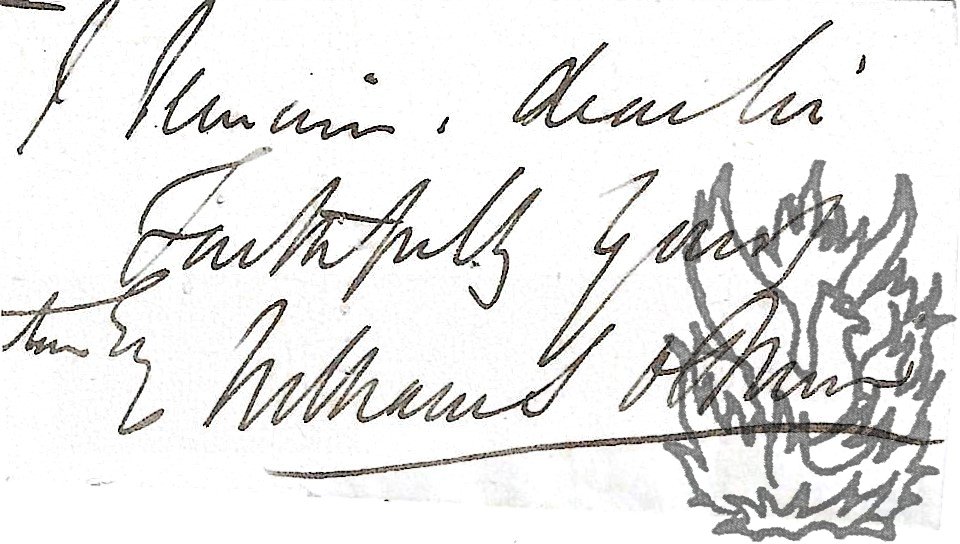 I remain, dear Sir
Faithfully yours
Esq William S O'Brien